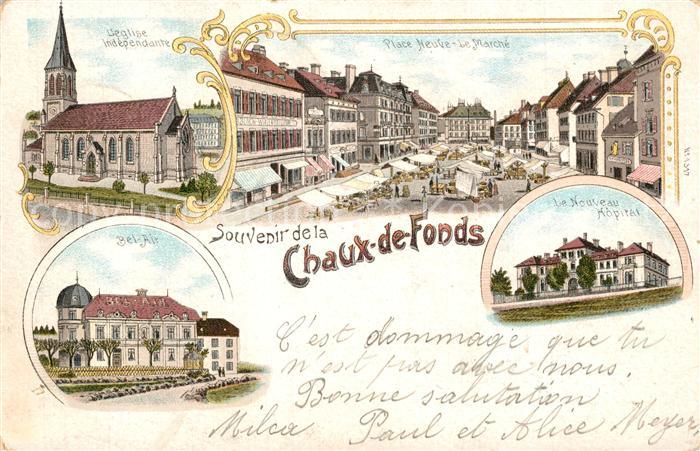 L'église
Indépendante
Place Neuve - Le Marché
Souvenir de la
Chaux-de-Fonds
Le Nouveau
Hôpital
Bel-Air
BEL-AIR
C'est dommage que tu
n'est pas avec nous.
Bonne salutation
Milca Paul et Alice Meyer,